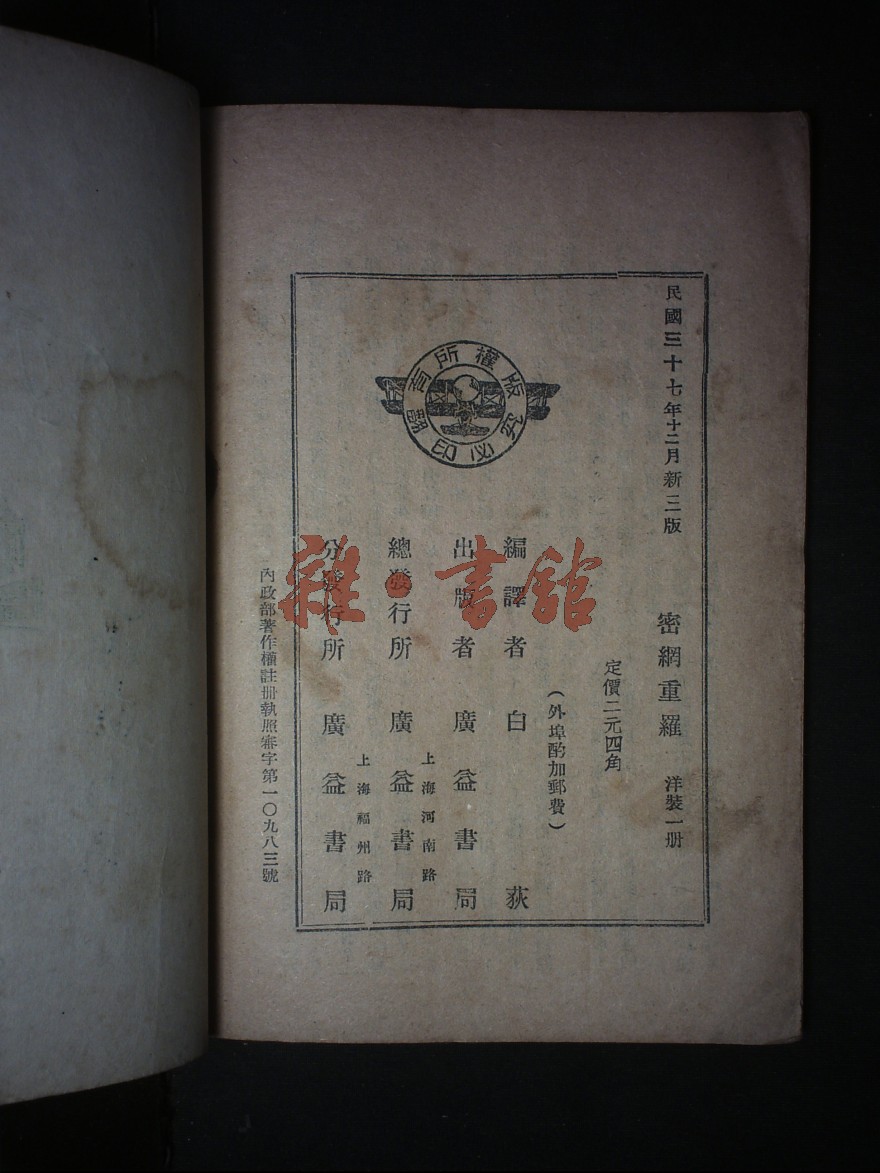 民國三十七年十二月新三版
密網重羅 洋裝一册
定價二元四角
(外埠酌加郵費)
編譯者 白荻
出版者 廣益書局
上海河南路
總發行所 廣益書局
上海福州路
分發行所 廣益書局
內政部著作權註册執照審字第一〇九八三號
版權所有
翻印必究
雜·書館